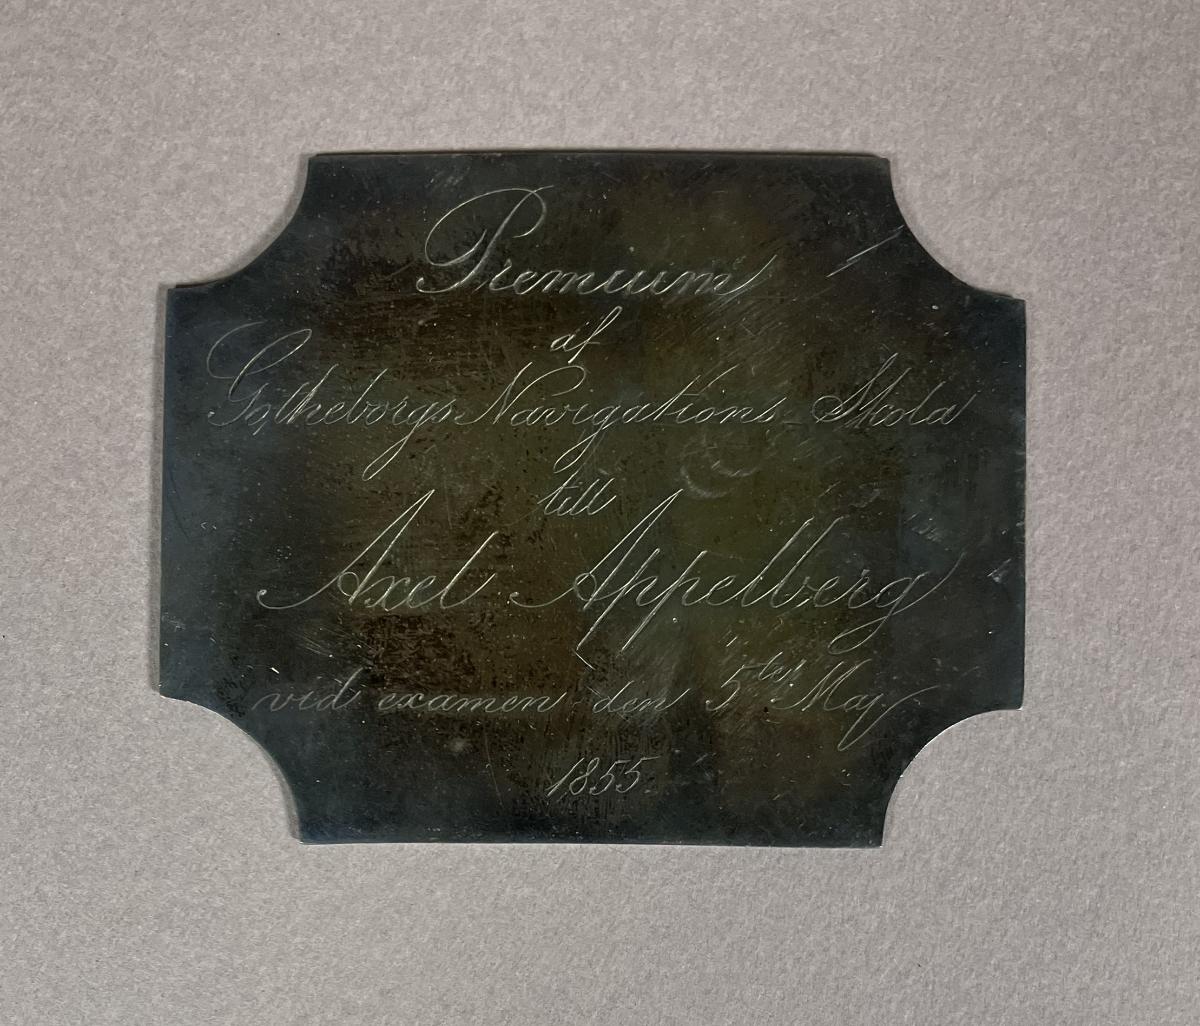 Premium
af
Götheborgs Navigations-Skola
till
Axel Appelberg
vid examen den 5tes Maj
1855.